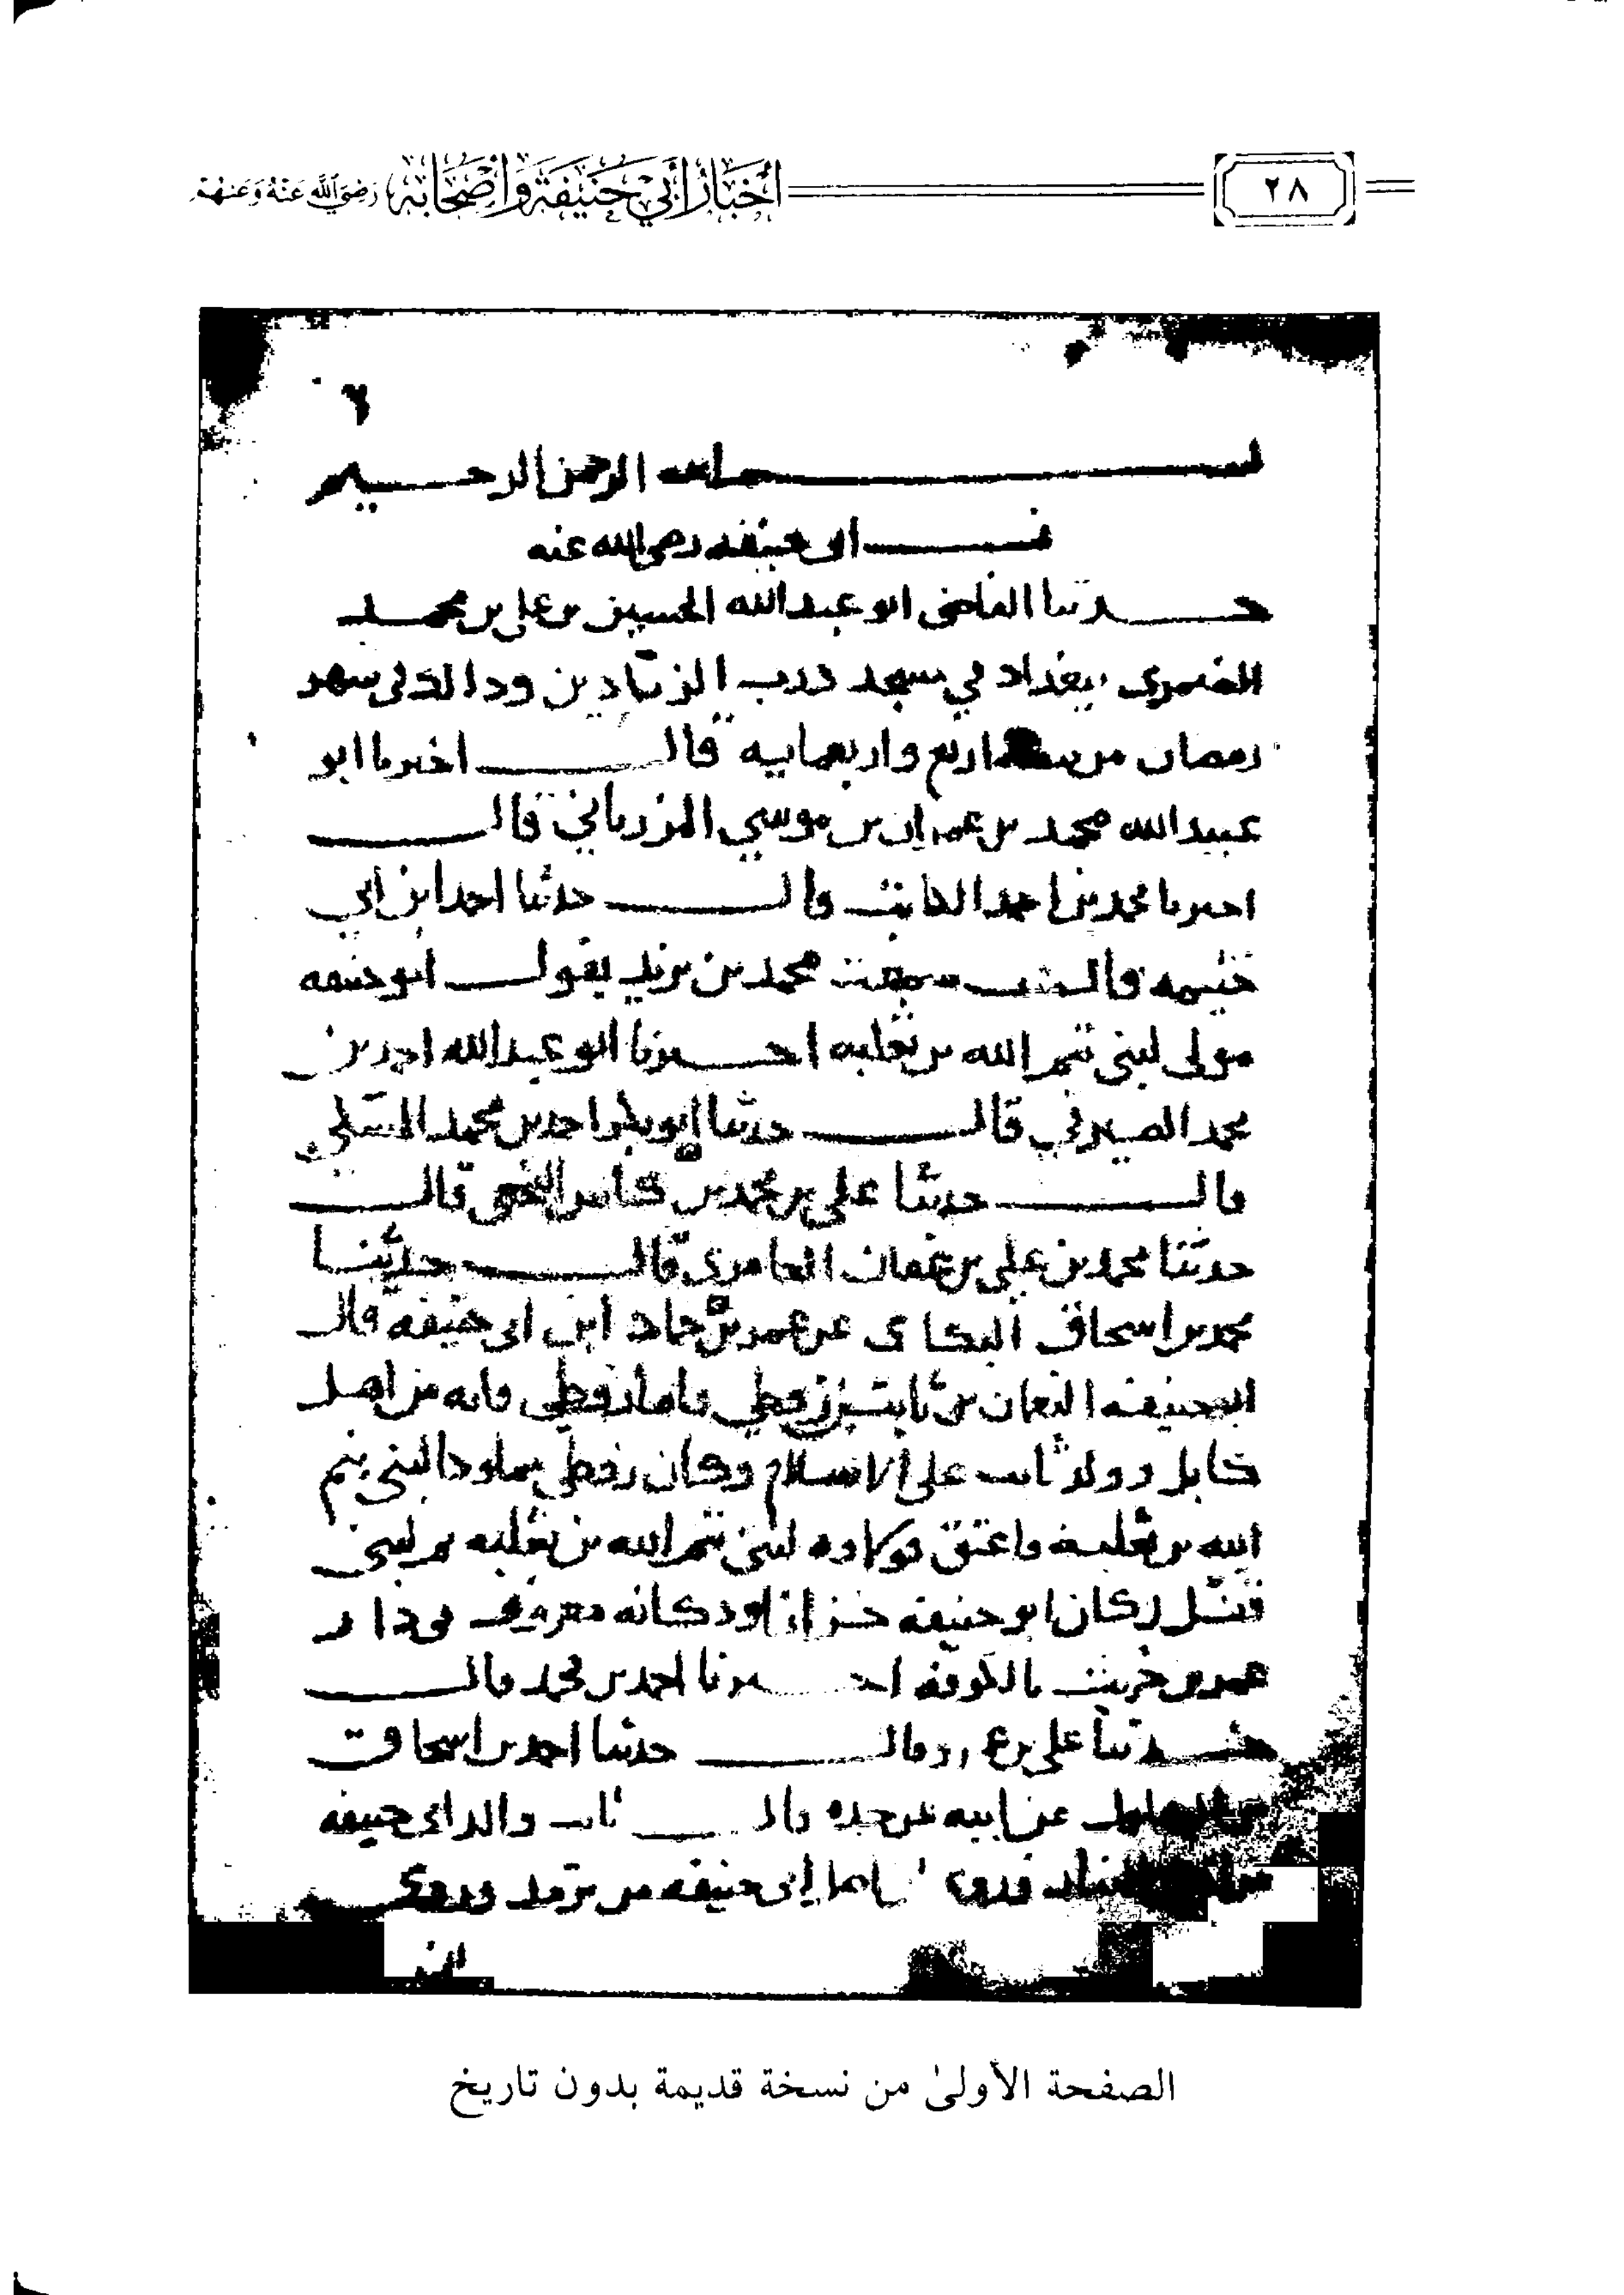 ٢٨
أخبار أبي حنيفة وأصحابه رضي الله عنه وعنهم
٢
بسم الله الرحمن الرحيم
ابى حنيفه رضى الله عنه
حدثنا القاضى ابو عبد الله الحسين بن على بن محمد
الصيمرى ببغداد في مسجد درب الزرادين فى شهر
رمضان من سنة اربع واربعمايه قال اخبرنا ابو
عبيد الله محمد بن عمران بن موسي المرزباني قال
اخبرنا محمد بن احمد الكاتب قال حدثنا احمد ابن ابي
خيثمه قال سمعت محمد بن يزيد يقول ابو حنيفه
مولى لبنى تيم الله بن ثعلبه اخبرنا ابو عبد الله احمد بن
محمد الصيرفي قال حدثنا ابو بكر احمد بن محمد المسكي
قال حدثنا علي بن محمد بن كاس النخعى قال
حدثنا محمد بن علي بن عفان العامرى قال حدثنا
محمد بن اسحاق البكاى عن عمر بن حماد ابن ابى حنيفه قال
ابو حنيفه النعمان بن ثابت بن زوطي فاما زوطي فانه من اهل
كابل وولد ثابت على الاسلام وكان زوطي مملوكا لبنى تيم
الله بن ثعلبه فاعتق فولاوه لبنى تيم الله بن ثعلبه
وكان ابو حنيفه خزازا ودكانه معروف فى دار
عمرو بن حريث بالكوفه اخبرنا احمد بن محمد قال
حدثنا علي بن قال حدثنا احمد بن اسحاق
عن ابيه عن جده قال ثابت والد ابى حنيفه
من وروى ابى حنيفه من ترمذ وروى
الصفحة الأولى من نسخة قديمة بدون تاريخ